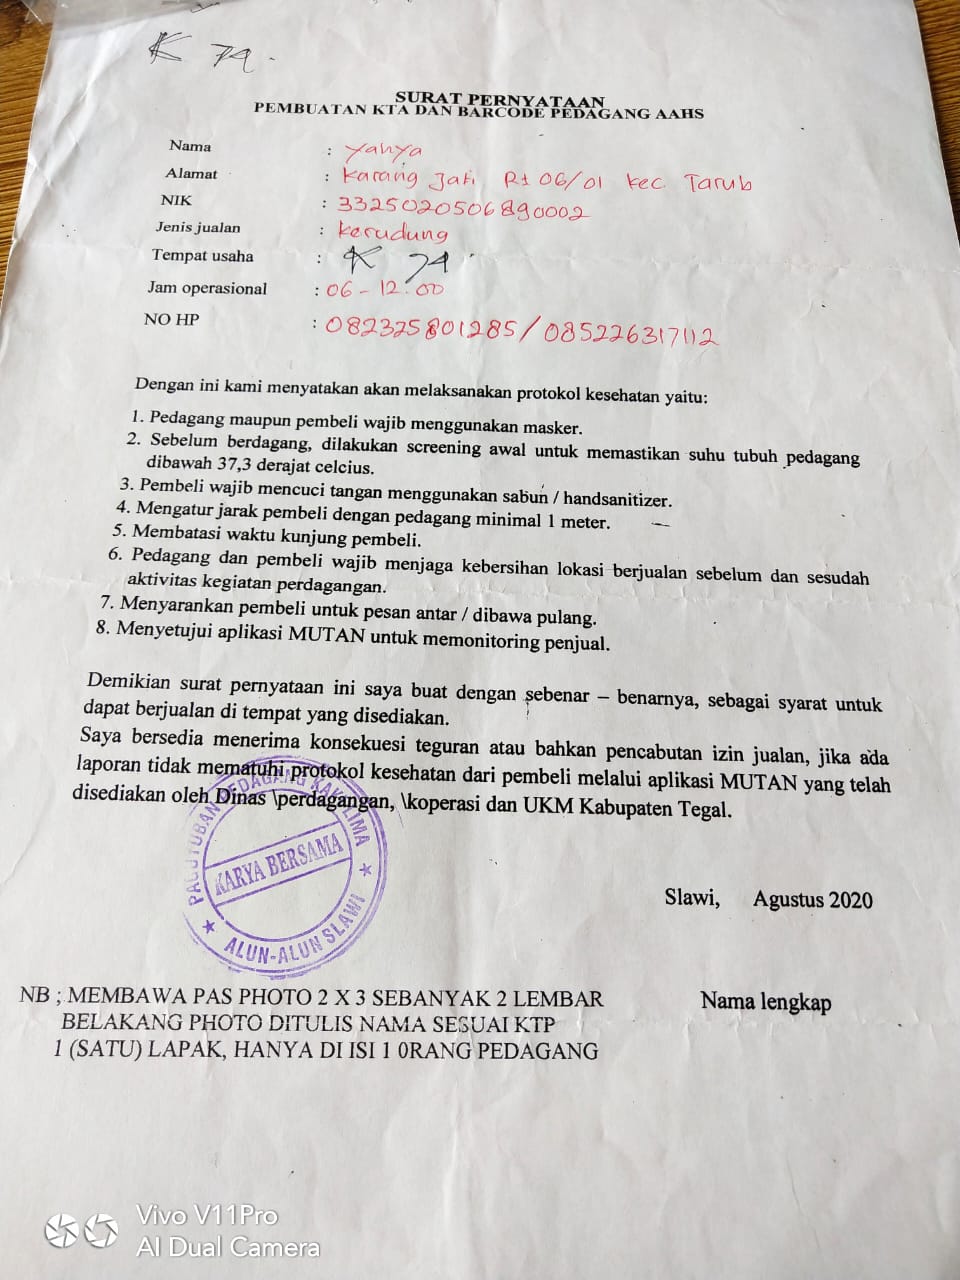 K 79.
SURAT PERNYATAAN
PEMBUATAN KTA DAN BARCODE PEDAGANG AAHS
Nama : Yahya
Alamat : Karang Jati Rt 06/01 Kec Tarub
NIK : 3325020506890002
Jenis jualan : kerudung
Tempat usaha : K 79
Jam operasional : 06 - 12.00
NO HP : 082325801285/085226317112
Dengan ini kami menyatakan akan melaksanakan protokol kesehatan yaitu:
1. Pedagang maupun pembeli wajib menggunakan masker.
2. Sebelum berdagang, dilakukan screening awal untuk memastikan suhu tubuh pedagang
dibawah 37,3 derajat celcius.
3. Pembeli wajib mencuci tangan menggunakan sabun / handsanitizer.
4. Mengatur jarak pembeli dengan pedagang minimal 1 meter.
5. Membatasi waktu kunjung pembeli.
6. Pedagang dan pembeli wajib menjaga kebersihan lokasi berjualan sebelum dan sesudah
aktivitas kegiatan perdagangan.
7. Menyarankan pembeli untuk pesan antar / dibawa pulang.
8. Menyetujui aplikasi MUTAN untuk memonitoring penjual.
Demikian surat pernyataan ini saya buat dengan sebenar – benarnya, sebagai syarat untuk
dapat berjualan di tempat yang disediakan.
Saya bersedia menerima konsekuesi teguran atau bahkan pencabutan izin jualan, jika ada
laporan tidak mematuhi protokol kesehatan dari pembeli melalui aplikasi MUTAN yang telah
disediakan oleh Dinas \perdagangan, \koperasi dan UKM Kabupaten Tegal.
PAGUYUBAN PEDAGANG KAKI LIMA
KARYA BERSAMA
ALUN-ALUN SLAWI
Slawi, Agustus 2020
NB ; MEMBAWA PAS PHOTO 2 X 3 SEBANYAK 2 LEMBAR
BELAKANG PHOTO DITULIS NAMA SESUAI KTP
1 (SATU) LAPAK, HANYA DI ISI 1 0RANG PEDAGANG
Nama lengkap
Vivo V11Pro
AI Dual Camera